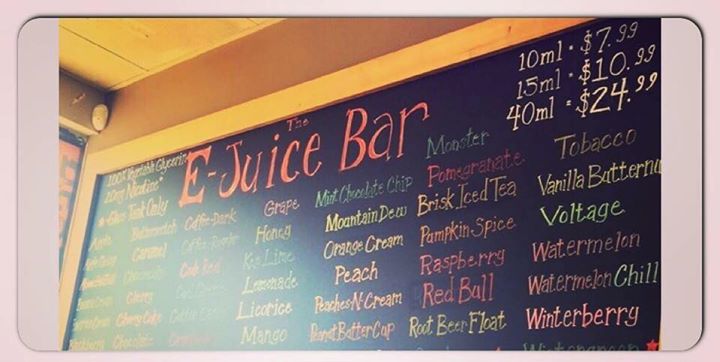 The
E-Juice Bar
10ml - $7.99
15ml - $10.99
40ml - $24.99
100% Vegetable Glycerin
20mg Nicotine
Glass Tank Only
Apple
Butterscotch
Caramel
Cherry
Chocolate
Coffee-Dark
Grape
Honey
Key Lime
Lemonade
Licorice
Mango
Mint Chocolate Chip
Mountain Dew
Orange Cream
Peach
Peaches-N-Cream
Peanut Butter Cup
Monster
Pomegranate
Brisk Iced Tea
Pumpkin Spice
Raspberry
Red Bull
Root Beer Float
Tobacco
Vanilla Butternu
Voltage
Watermelon
Watermelon Chill
Winterberry
Wintergreen